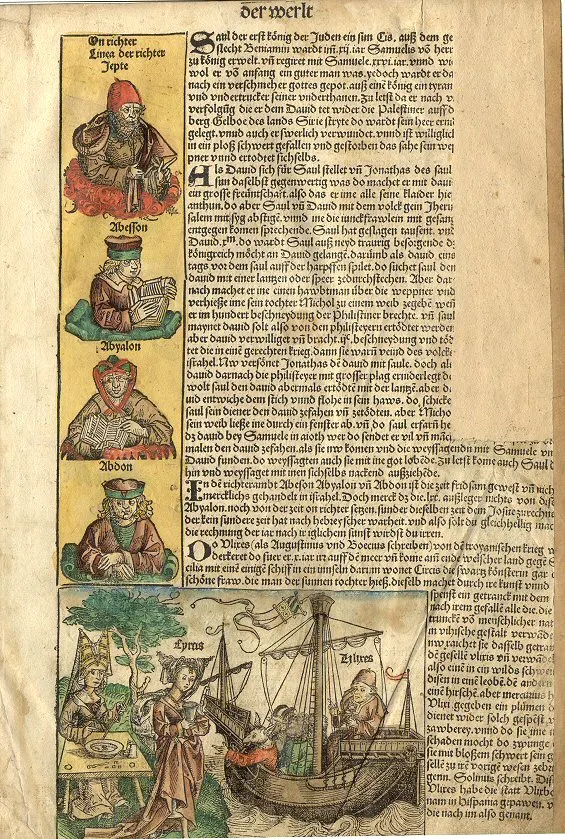 der werlt
On richter
Linea der richter
Jepte
Abesson
Abyalon
Abdon
Saul der erst könig der Juden ein sun Cis. auß dem ge
slecht Beniamin wardt im. xij. iar Samuelis vō herr
zu könig erwelt. vñ regiret mit Samuele. xxvi. iar. vnnd wi
wol er vō anfang ein guter man was. yedoch wardt er da
nach ein verschmeher gottes gepot. auß eine könig ein tyran
vnd vndertrucker seiner vnderthanen. zu letst da er nach v
verfolgūg die er dem Dauid tet wider die Palestiner auff d
berg Gelboe des lands Sirie stryte do wardt sein heer erni
gelegt. vnnd auch er swerlich verwundet. vnnd ist williglich
in ein ploß schwert gefallen vnd gestorben das sahe sein we
pner vnnd ertödtet sichselbs.
Als Dauid sich für Saul stellet vñ Jonathas des saul
sun daselbst gegenwertig was do machet er mit daui
ein grosse freüntschaft. also das er ime alle seine klaider hie
anthun. do aber Saul vñ Dauid mit dem volck gein Jheru
salem mit syg abstige. vnnd ine die iunckfrawlein mit gesang
entgegen komen sprechende. Saul hat geslagen tausent. vnd
Dauid. xm. do wardt Saul auß neyd traurig besorgende d
königreich möcht an Dauid gelangē. darumb als dauid eins
tags vor dem saul auff der harpffen spilet. do suchet saul den
dauid mit einer lantzen oder speer zedurchstechen. Aber dar
nach machet er ine einen hawbtman über die weppner vnd
verhieße ime sein tochter Michol zu einem weib zegebē weñ
er im hundert beschneydung der Philistiner brechte. vñ saul
maynet dauid solt also von den philisteyern ertödtet werden
aber dauid verwilliget vñ bracht. ijc. beschneydung vnd töd
tet die in eine gerechten krieg. dann sie warñ veind des volcks
israhel. Nw versönet Jonathas dē dauid mit saule. doch als
dauid darnach die philisteyer mit grosser plag erniderlegt d
wolt saul den dauid abermals ertödtē mit der lantzē. aber d
uid entwiche dem stich vnnd flohe in sein haws. do schickt
saul sein diener den dauid zefahen vñ zetödten. aber Micho
sein weib ließe ine durch ein fenster ab. vñ do saul erfarñ he
dz dauid bey Samuele in aioth wer do sendet er vil vñ mac
malen den dauid zefahen. als sie nw komen vnd die weyssagenden mit Samuele vn
Dauid funden. do weyssagten auch sie mit ine got lobēde. Zu letst kome auch Saul d
hin vnd weyssaget mit inen sichselbs nackend außziehēde.
In dē richterambt Abeson Abyalon vñ Abdon ist die zeit fridsam gewest vñ nich
mercklichs gehandelt in israhel. Doch merck dz die. lxx. außleger nichts von disē
Abyalon. noch von der zeit on richter setzen. sunder dieselben zeit dem Josue zurechne
der kein sundere zeit hat nach hebreyscher warheit. vnd also soltu gleichhellig mac
die rechnung der iar nach iglichem sunst wirdst du irren.
Do Vlixes (als Augustinus vnd Boecius schreiben) von dē troyanischen krieg w
derkert do fuer er. x. iar irr auff dē meer vñ kome an eñ welscher land gege S
cilia mit eine einige schiff in ein inseln darin wonet Circis die swartz künsterin gar
schöne fraw. die man der sunnen tochter hieß. dieselb machet durch ire kunst vnnd
spenst ein getranck mit dem
nach irem gefallē alle die. die
truncke vō menschlicher nat
in vihische gestalt verwāde
nw raichet sie dasselb getra
dē gesellē vlixis vñ verwāde
also eine in ein wilds schw
disen in eine lobē. dē andern
eine hirsche. aber mercurius h
Vlixi gegeben ein plümen d
dienet wider solch gespēst. v
zawberey. vnnd do sie ime n
schaden mocht do zwunge
sie mit bloßem schwert sein g
sellē zu ire vorige wesen zebri
genn. Solinus schreibt. Dis
Vlixes habe die statt Vlixbo
nam in Hispania gepawen. v
die nach im also genant.
Cyrcis
Vlixes